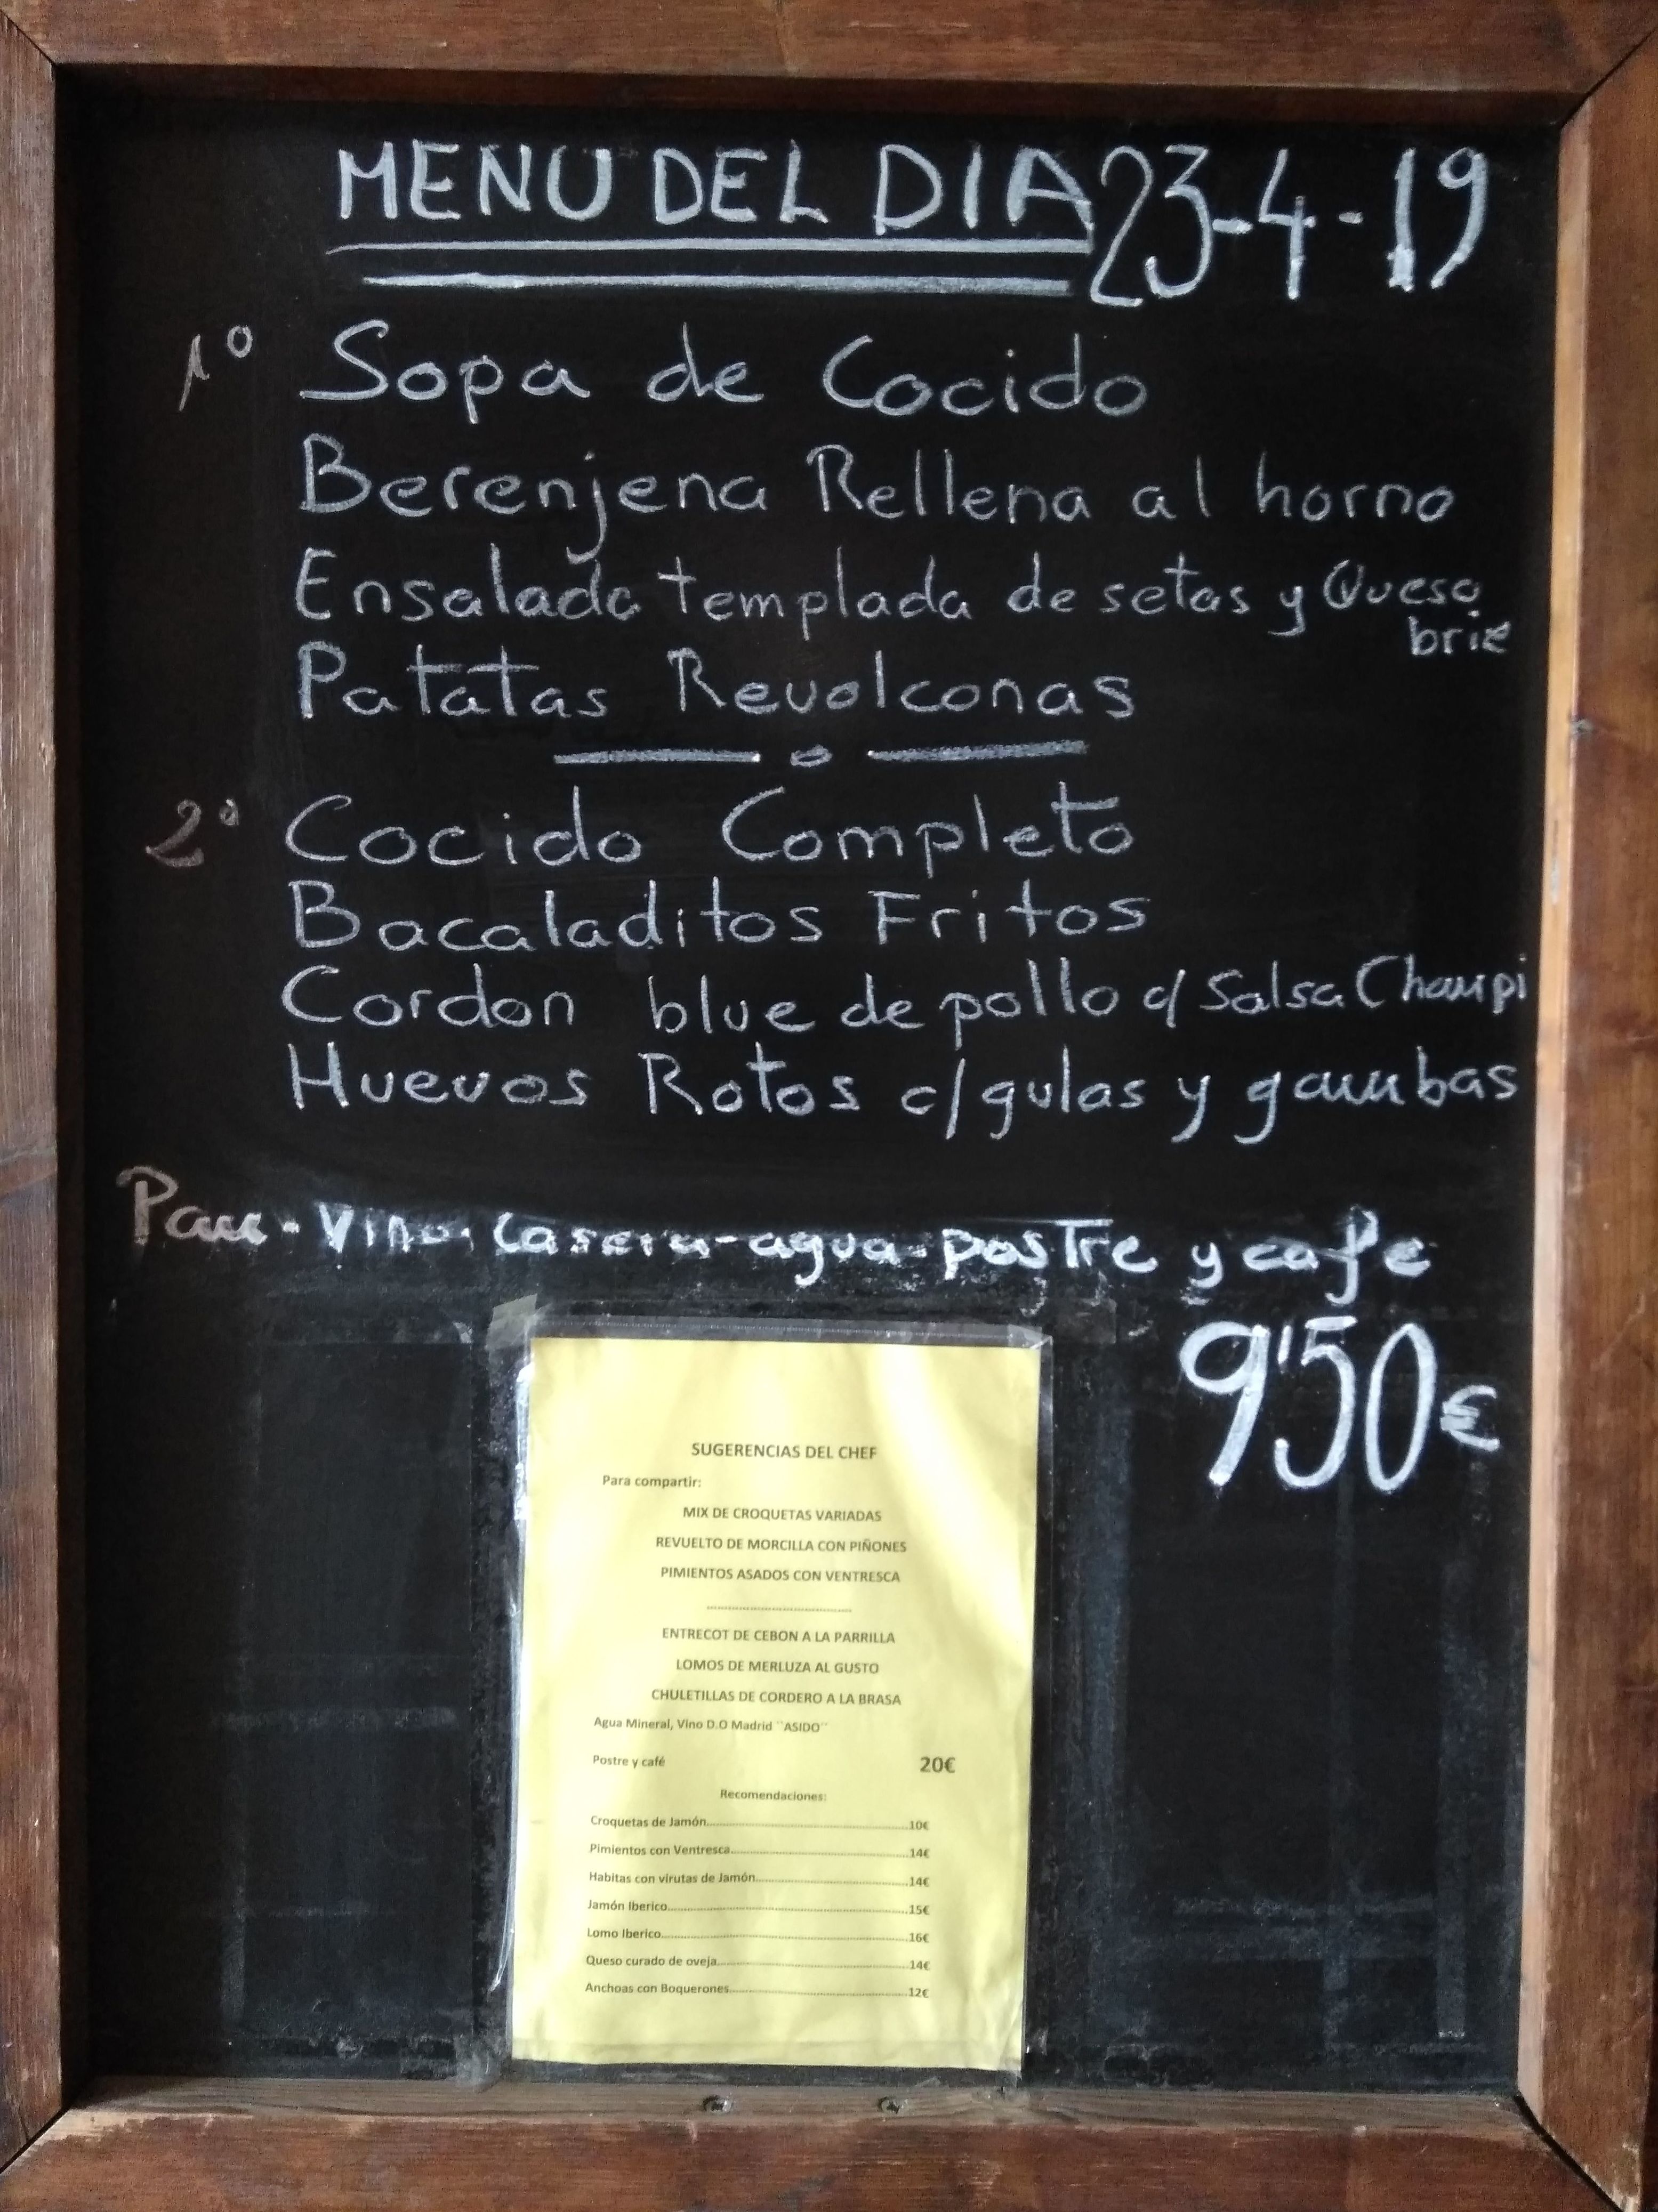 MENU DEL DIA 23-4-19
1º Sopa de Cocido
Berenjena Rellena al horno
Ensalada templada de setas y Queso
brie
Patatas Revolconas
2º Cocido Completo
Bacaladitos Fritos
Cordon blue de pollo c/ Salsa Champi
Huevos Rotos c/ gulas y gambas
Pan - Vino - Casera - agua - postre y cafe
9'50€
SUGERENCIAS DEL CHEF
Para compartir:
MIX DE CROQUETAS VARIADAS
REVUELTO DE MORCILLA CON PIÑONES
PIMIENTOS ASADOS CON VENTRESCA
ENTRECOT DE CEBON A LA PARRILLA
LOMOS DE MERLUZA AL GUSTO
CHULETILLAS DE CORDERO A LA BRASA
Agua Mineral, Vino D.O Madrid ¨ASIDO¨
Postre y café 20€
Recomendaciones:
Croquetas de Jamón 10€
Pimientos con Ventresca 14€
Habitas con virutas de Jamón 14€
Jamón Iberico 15€
Lomo Iberico 16€
Queso curado de oveja 14€
Anchoas con Boquerones 12€